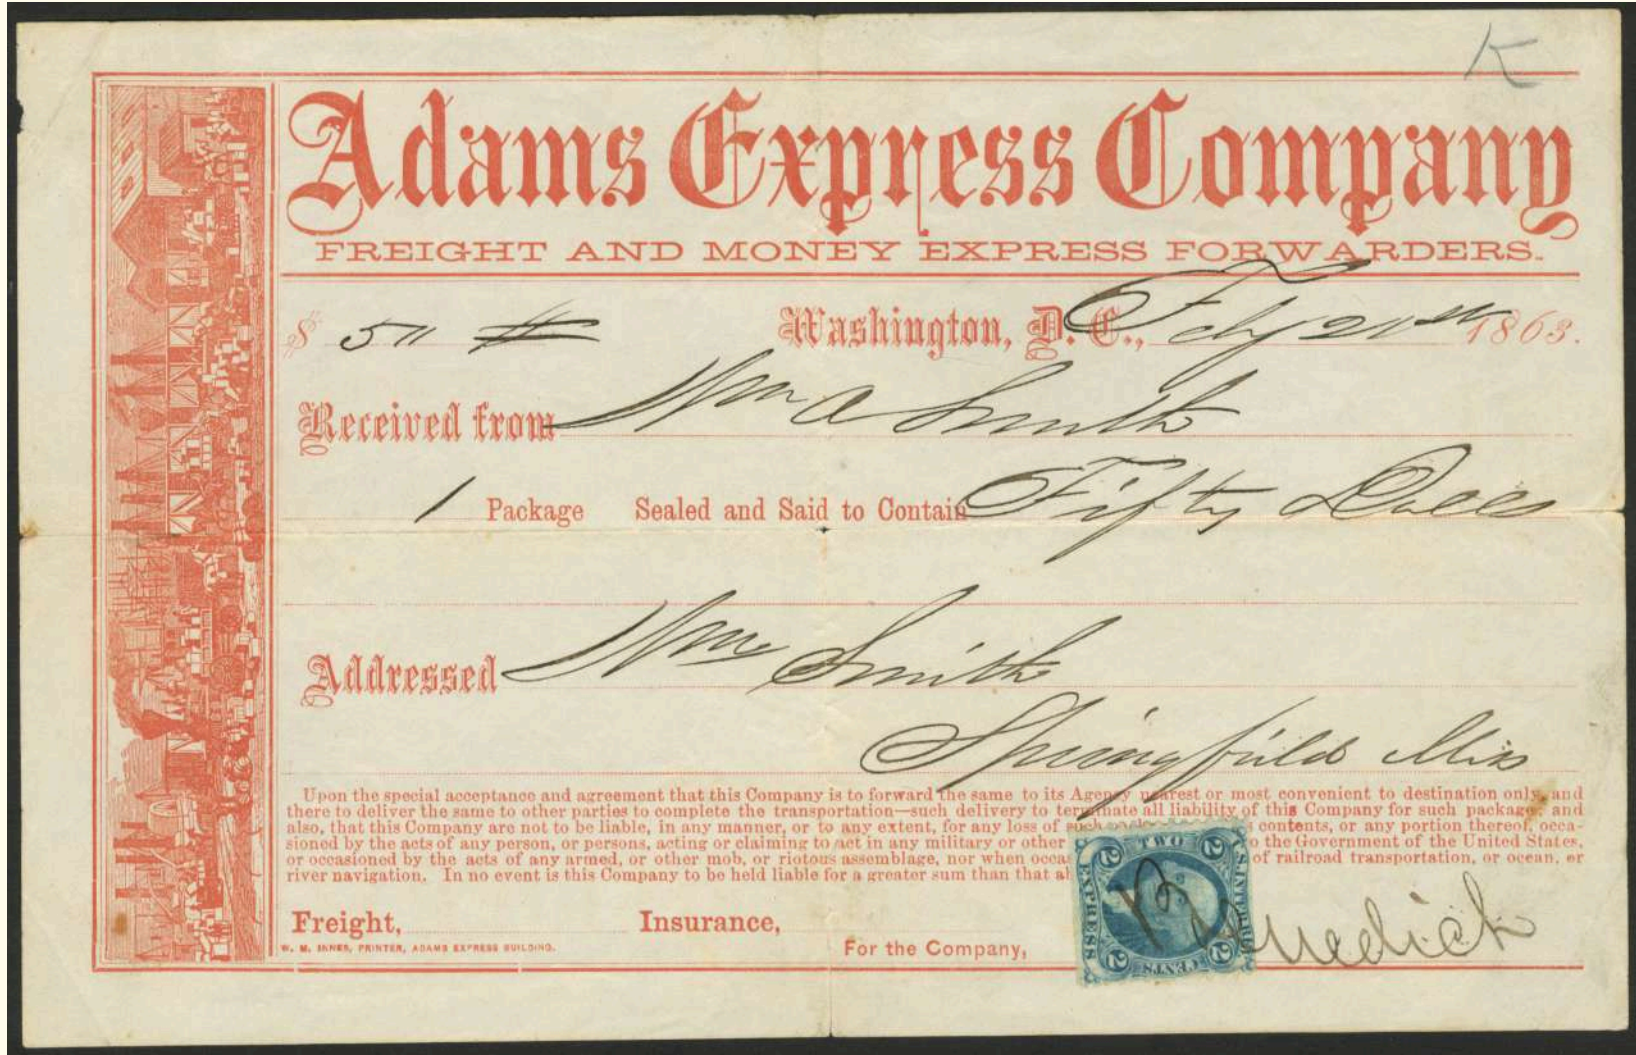 K
Adams Express Company
FREIGHT AND MONEY EXPRESS FORWARDERS.
$ 50 Washington, D. C., Feby 20th 1863.
Received from Wm A Smith
1 Package Sealed and Said to Contain Fifty Dolls
Addressed Wm Smith
Springfield
Upon the special acceptance and agreement that this Company is to forward the same to its Agency nearest or most convenient to destination only, and
there to deliver the same to other parties to complete the transportation—such delivery to terminate all liability of this Company for such package; and
also, that this Company are not to be liable, in any manner, or to any extent, for any loss of such contents, or any portion thereof, occa-
sioned by the acts of any person, or persons, acting or claiming to act in any military or other to the Government of the United States,
or occasioned by the acts of any armed, or other mob, or riotous assemblage, nor when occa of railroad transportation, or ocean, or
river navigation. In no event is this Company to be held liable for a greater sum than that ab
TWO
U.S. INTER. REV.
EXPRESS
CENTS
2 2 2 2
Freight, Insurance,
W. M. INNES, PRINTER, ADAMS EXPRESS BUILDING.
For the Company,